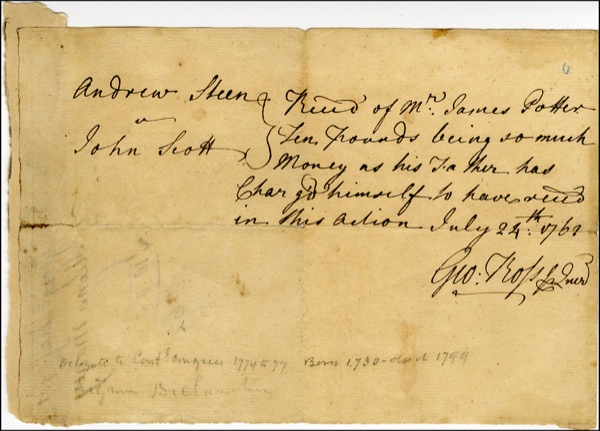 Andrew Steen
v
John Scott
Recd of Mr. James Potter
Ten Pounds being so much
Money as his Father has
Chargd himself to have recd
in this Action July 24th. 1762
Geo: Ross
Delegate to Cont Congress 1774 to 77 Born 1730 - died 1799
Signer Declaration